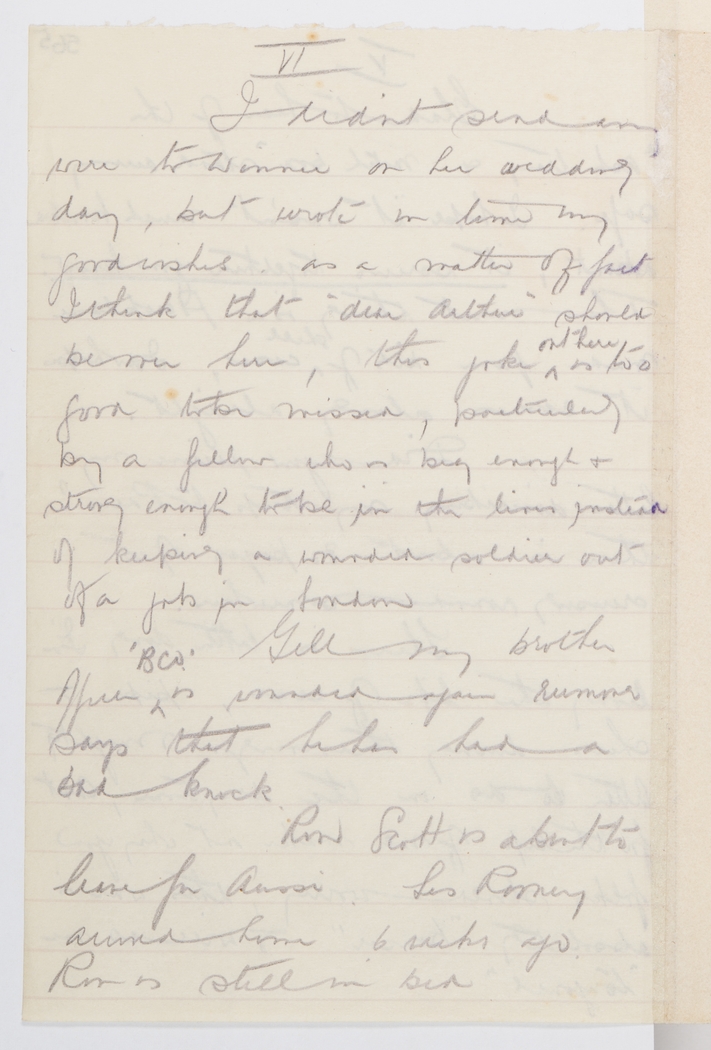 VI
I didn't send any
wire to Winnie on her wedding
day, but wrote in time my
good wishes. as a matter of fact
I think that "dear Arthur" should
be over here, this joke out here is too
good to be missed, particularly
by a fellow who is big enough &
strong enough to be in the lines instead
of keeping a wounded soldier out
of a job in London
Gell my brother
'BCo.'
Officer is wounded again rumour
says that he has had a
bad knock.
Ron Scott is about to
leave for Aussi. Les Romney
arrived home 6 weeks ago.
Ron is still in bed